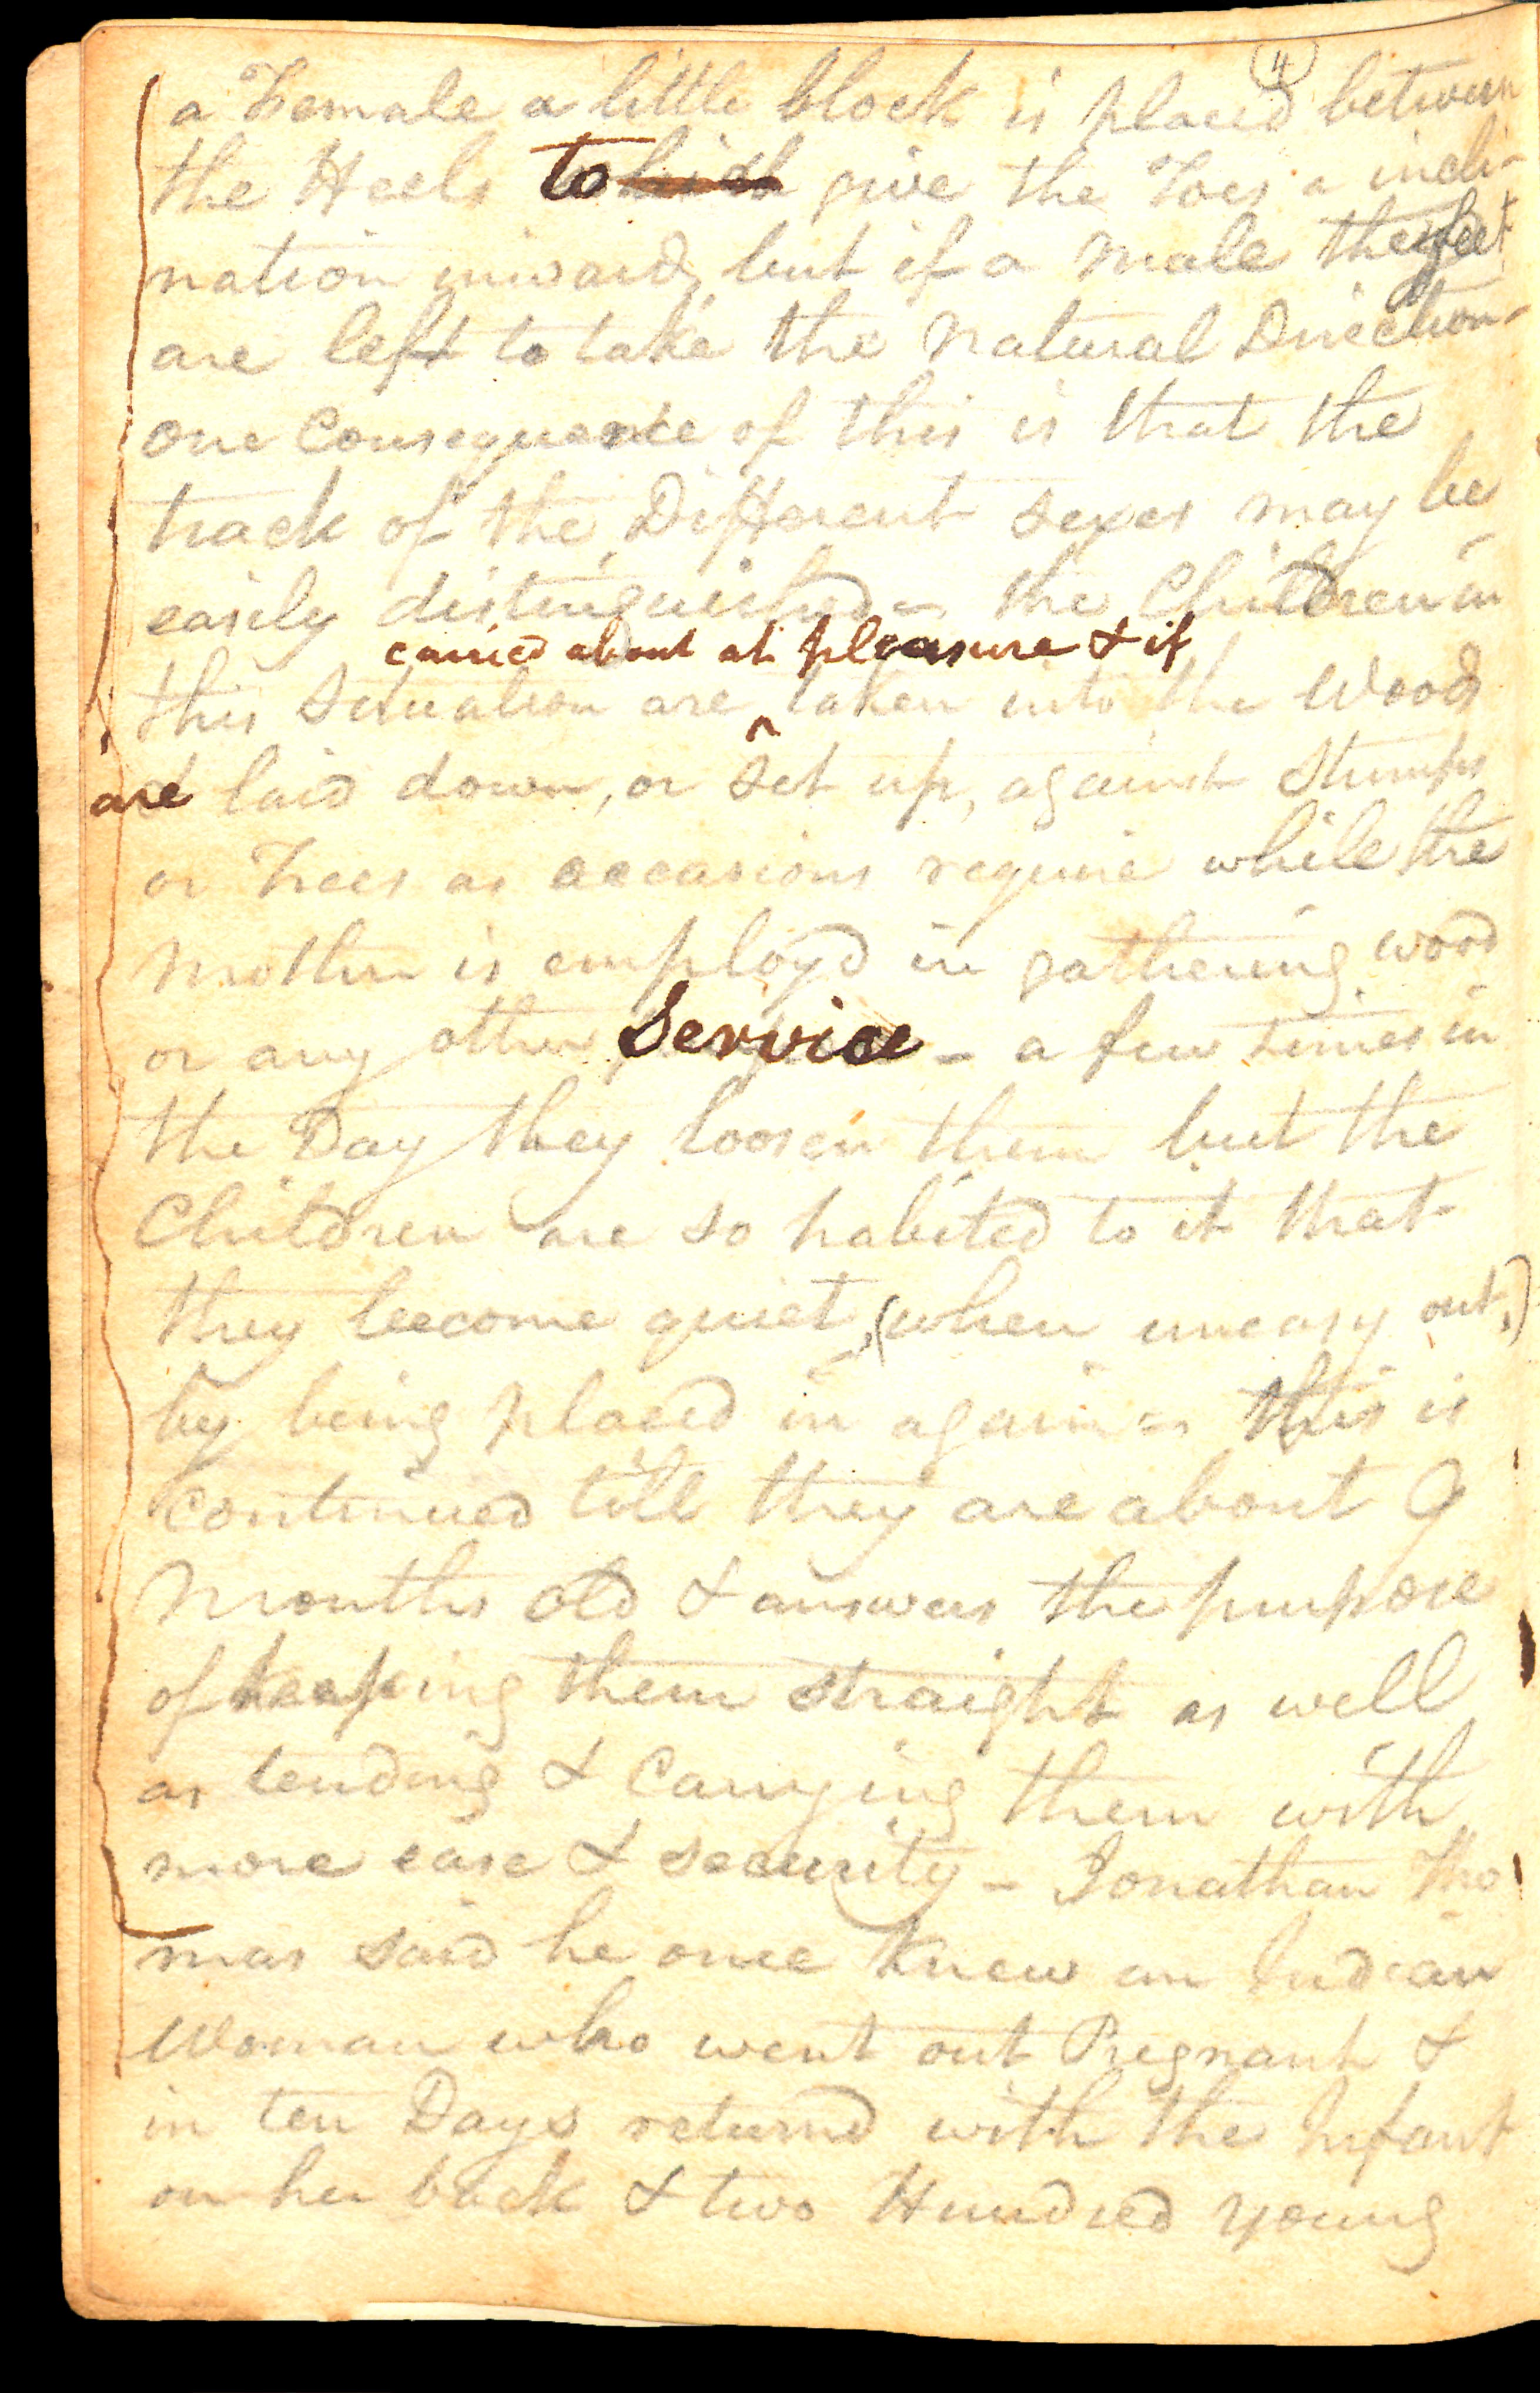 4
a Female a little block is placed between
the Heels to give the Toes a incli-
nation inward, but if a Male the feet
are left to take the Natural Direction-
one Consequence of this is that the
track of the Different sexes may be
easily distinguished - the Children in
carried about at pleasure & if
this Situation are ^ taken into the Woods
are laid down, or set up, against Stumps
or Trees as occasions require while the
Mother is employd in gathering wood
or any other Service - a few times in
the Day they loosen them but the
Children are so habited to it that
they become quiet, (when uneasy out,)
by being placed in again - this is
continued till they are about 9
Months old & answers the purpose
of keeping them straight as well
as tending & Carrying them with
more ease & security - Jonathan Tho
mas said he once knew an Indian
Woman who went out Pregnant &
in ten Days returnd with the Infant
on her back & two Hundred young